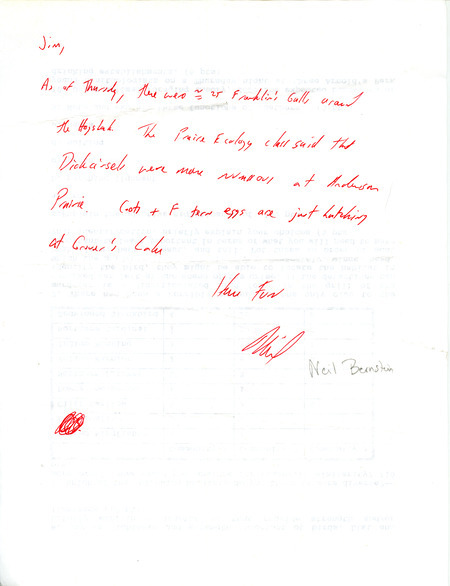 Jim,
As of Thursday, there were ≅ 25 Franklin's Gulls around
the Haystack. The Prairie Ecology class said that
Dickcissels were more numerous at Anderson
Prairie. Coots + F tern eggs are just hatching
at Grover's Lake
Have Fun
Neil
Neil Bernstein